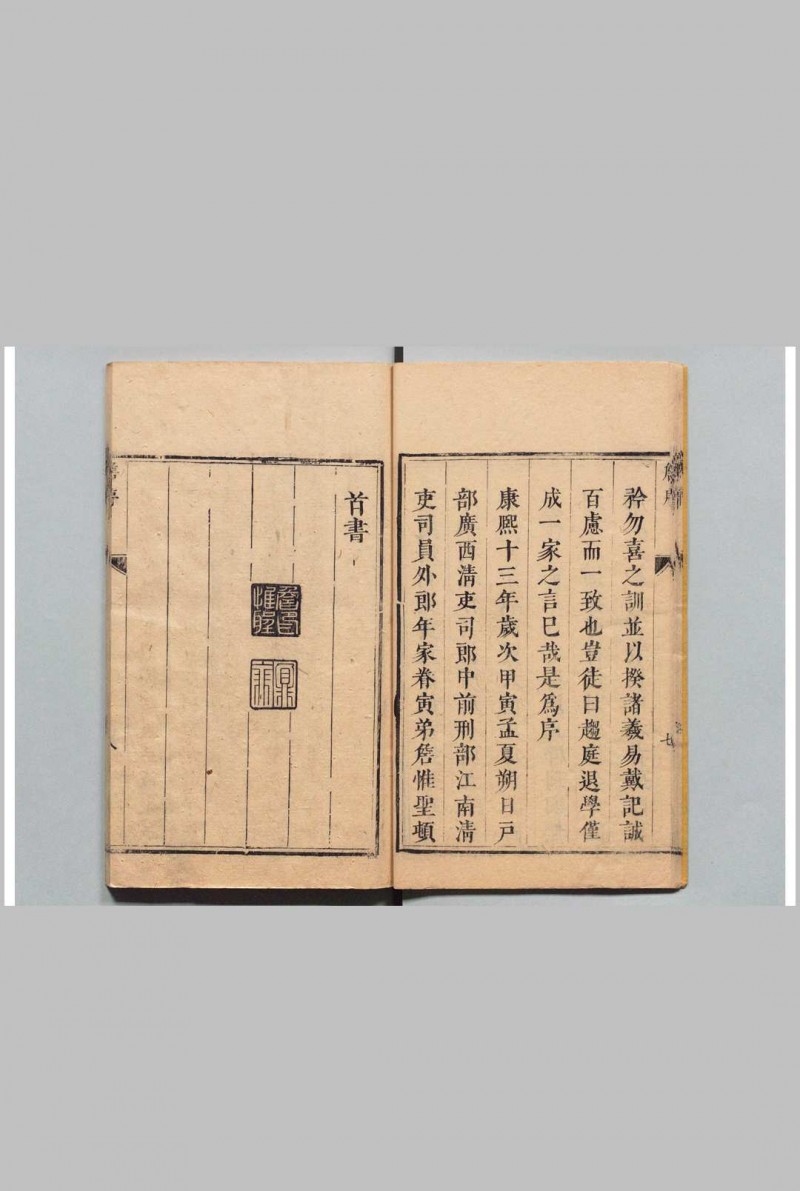 矜勿喜之訓並以揆諸羲易戴記誠
百慮而一致也豈徒曰趨庭退學僅
成一家之言已哉是爲序
康熈十三年歲次甲寅孟夏朔日戸
部廣西清吏司郎中前刑部江南清
吏司員外郎年家眷寅弟詹惟聖頓
首書
詹序
七